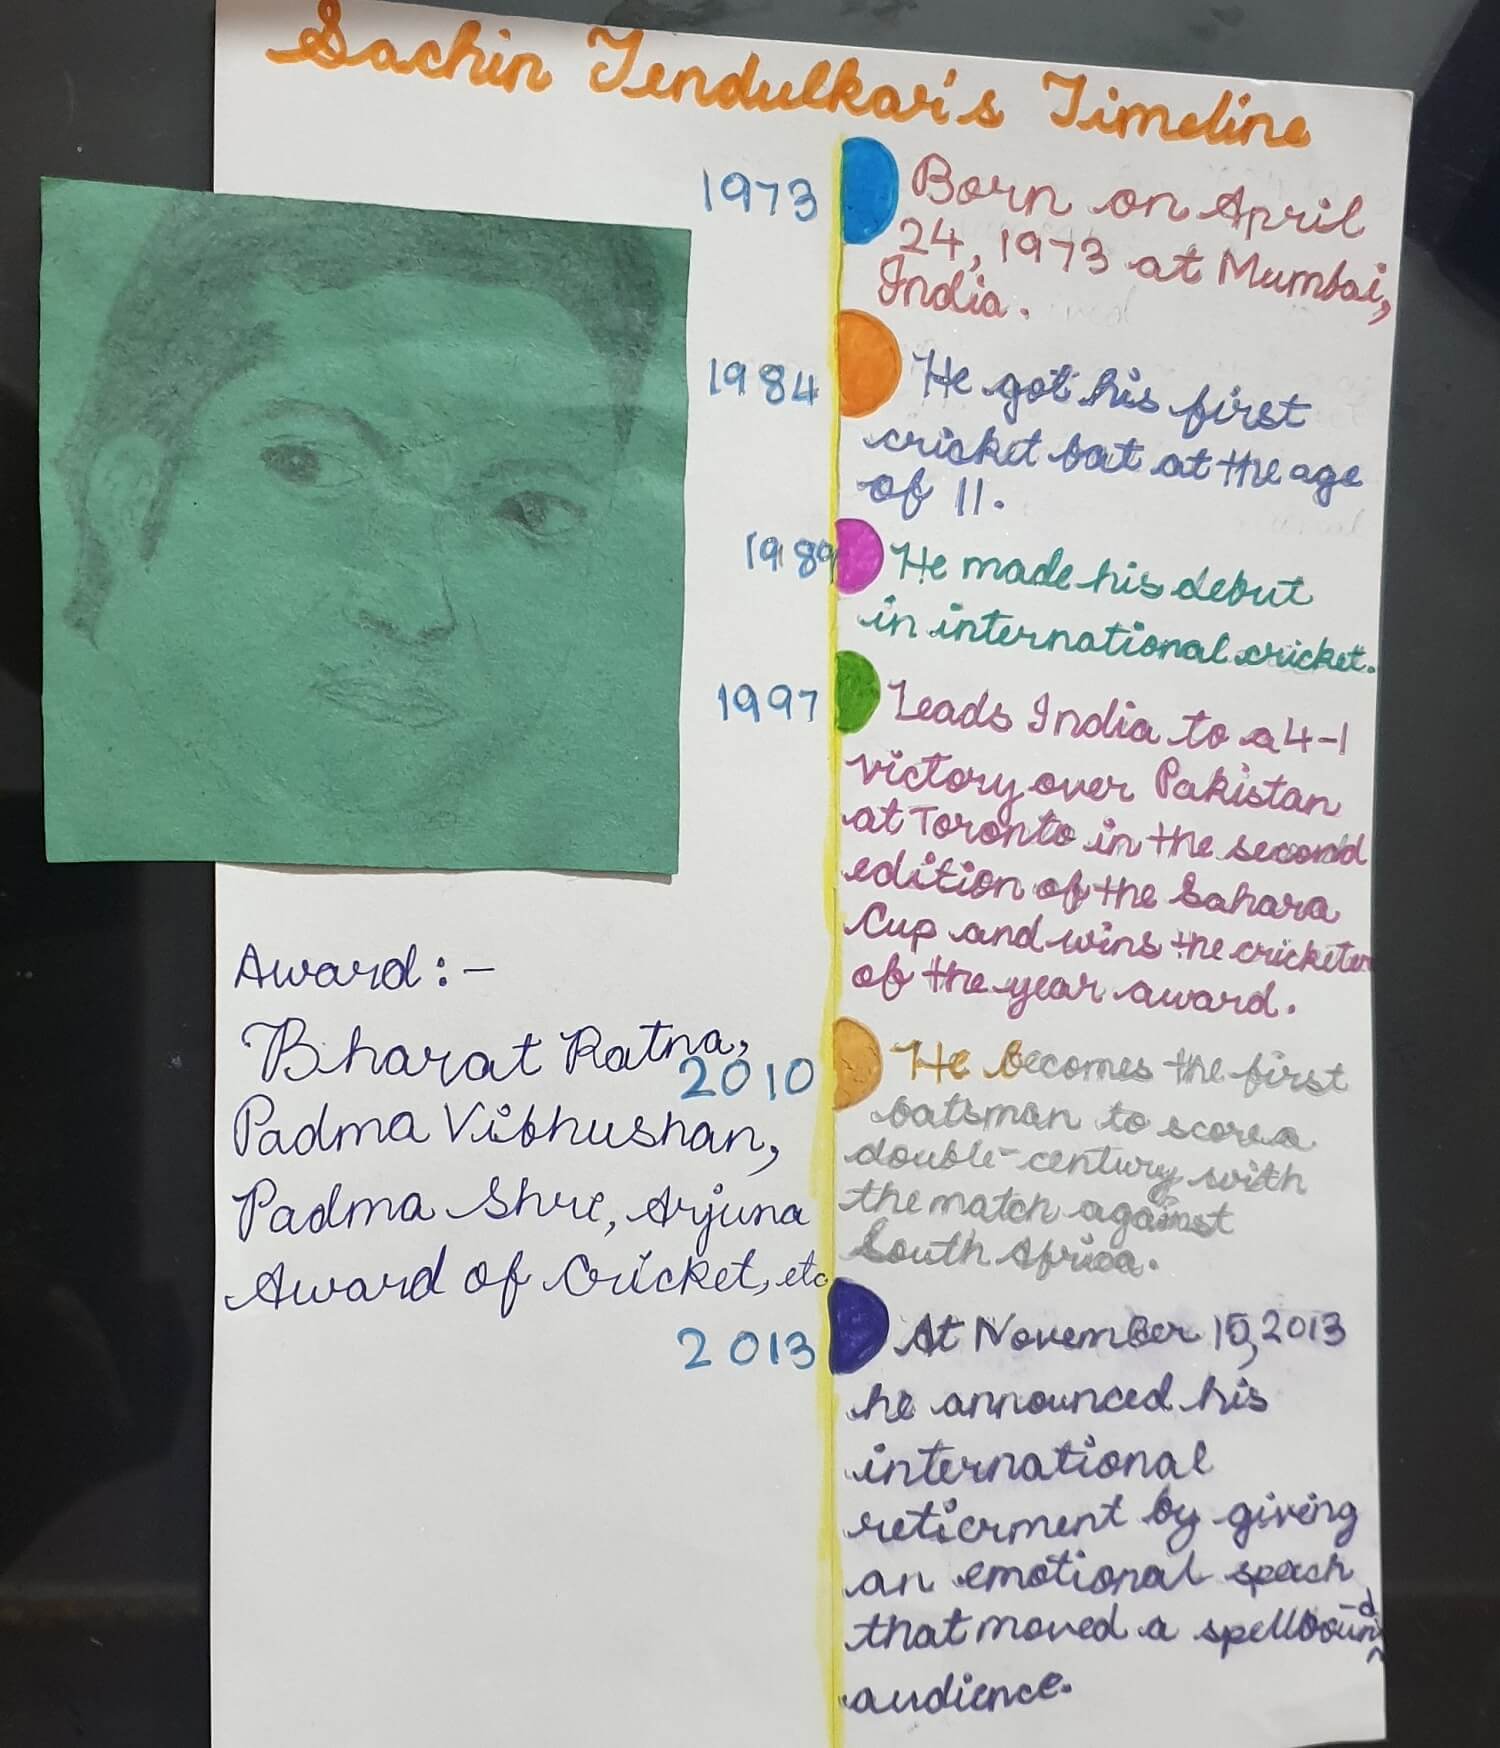 Sachin Tendulkar's Timeline
1973
Born on April
24, 1973 at Mumbai,
India.
1984
He got his first
cricket bat at the age
of 11.
1989
He made his debut
in international cricket.
1997
Leads India to a 4-1
victory over Pakistan
at Toronto in the second
edition of the Sahara
Cup and wins the cricketer
of the year award.
2010
He becomes the first
batsman to score a
double-century with
the match against
South Africa.
2013
At November 15, 2013
he announced his
international
reticrment by giving
an emotional speach
that moved a spellboun-d
audience.
Award:-
Bharat Ratna,
Padma Vibhushan,
Padma Shri, Arjuna
Award of Cricket, etc